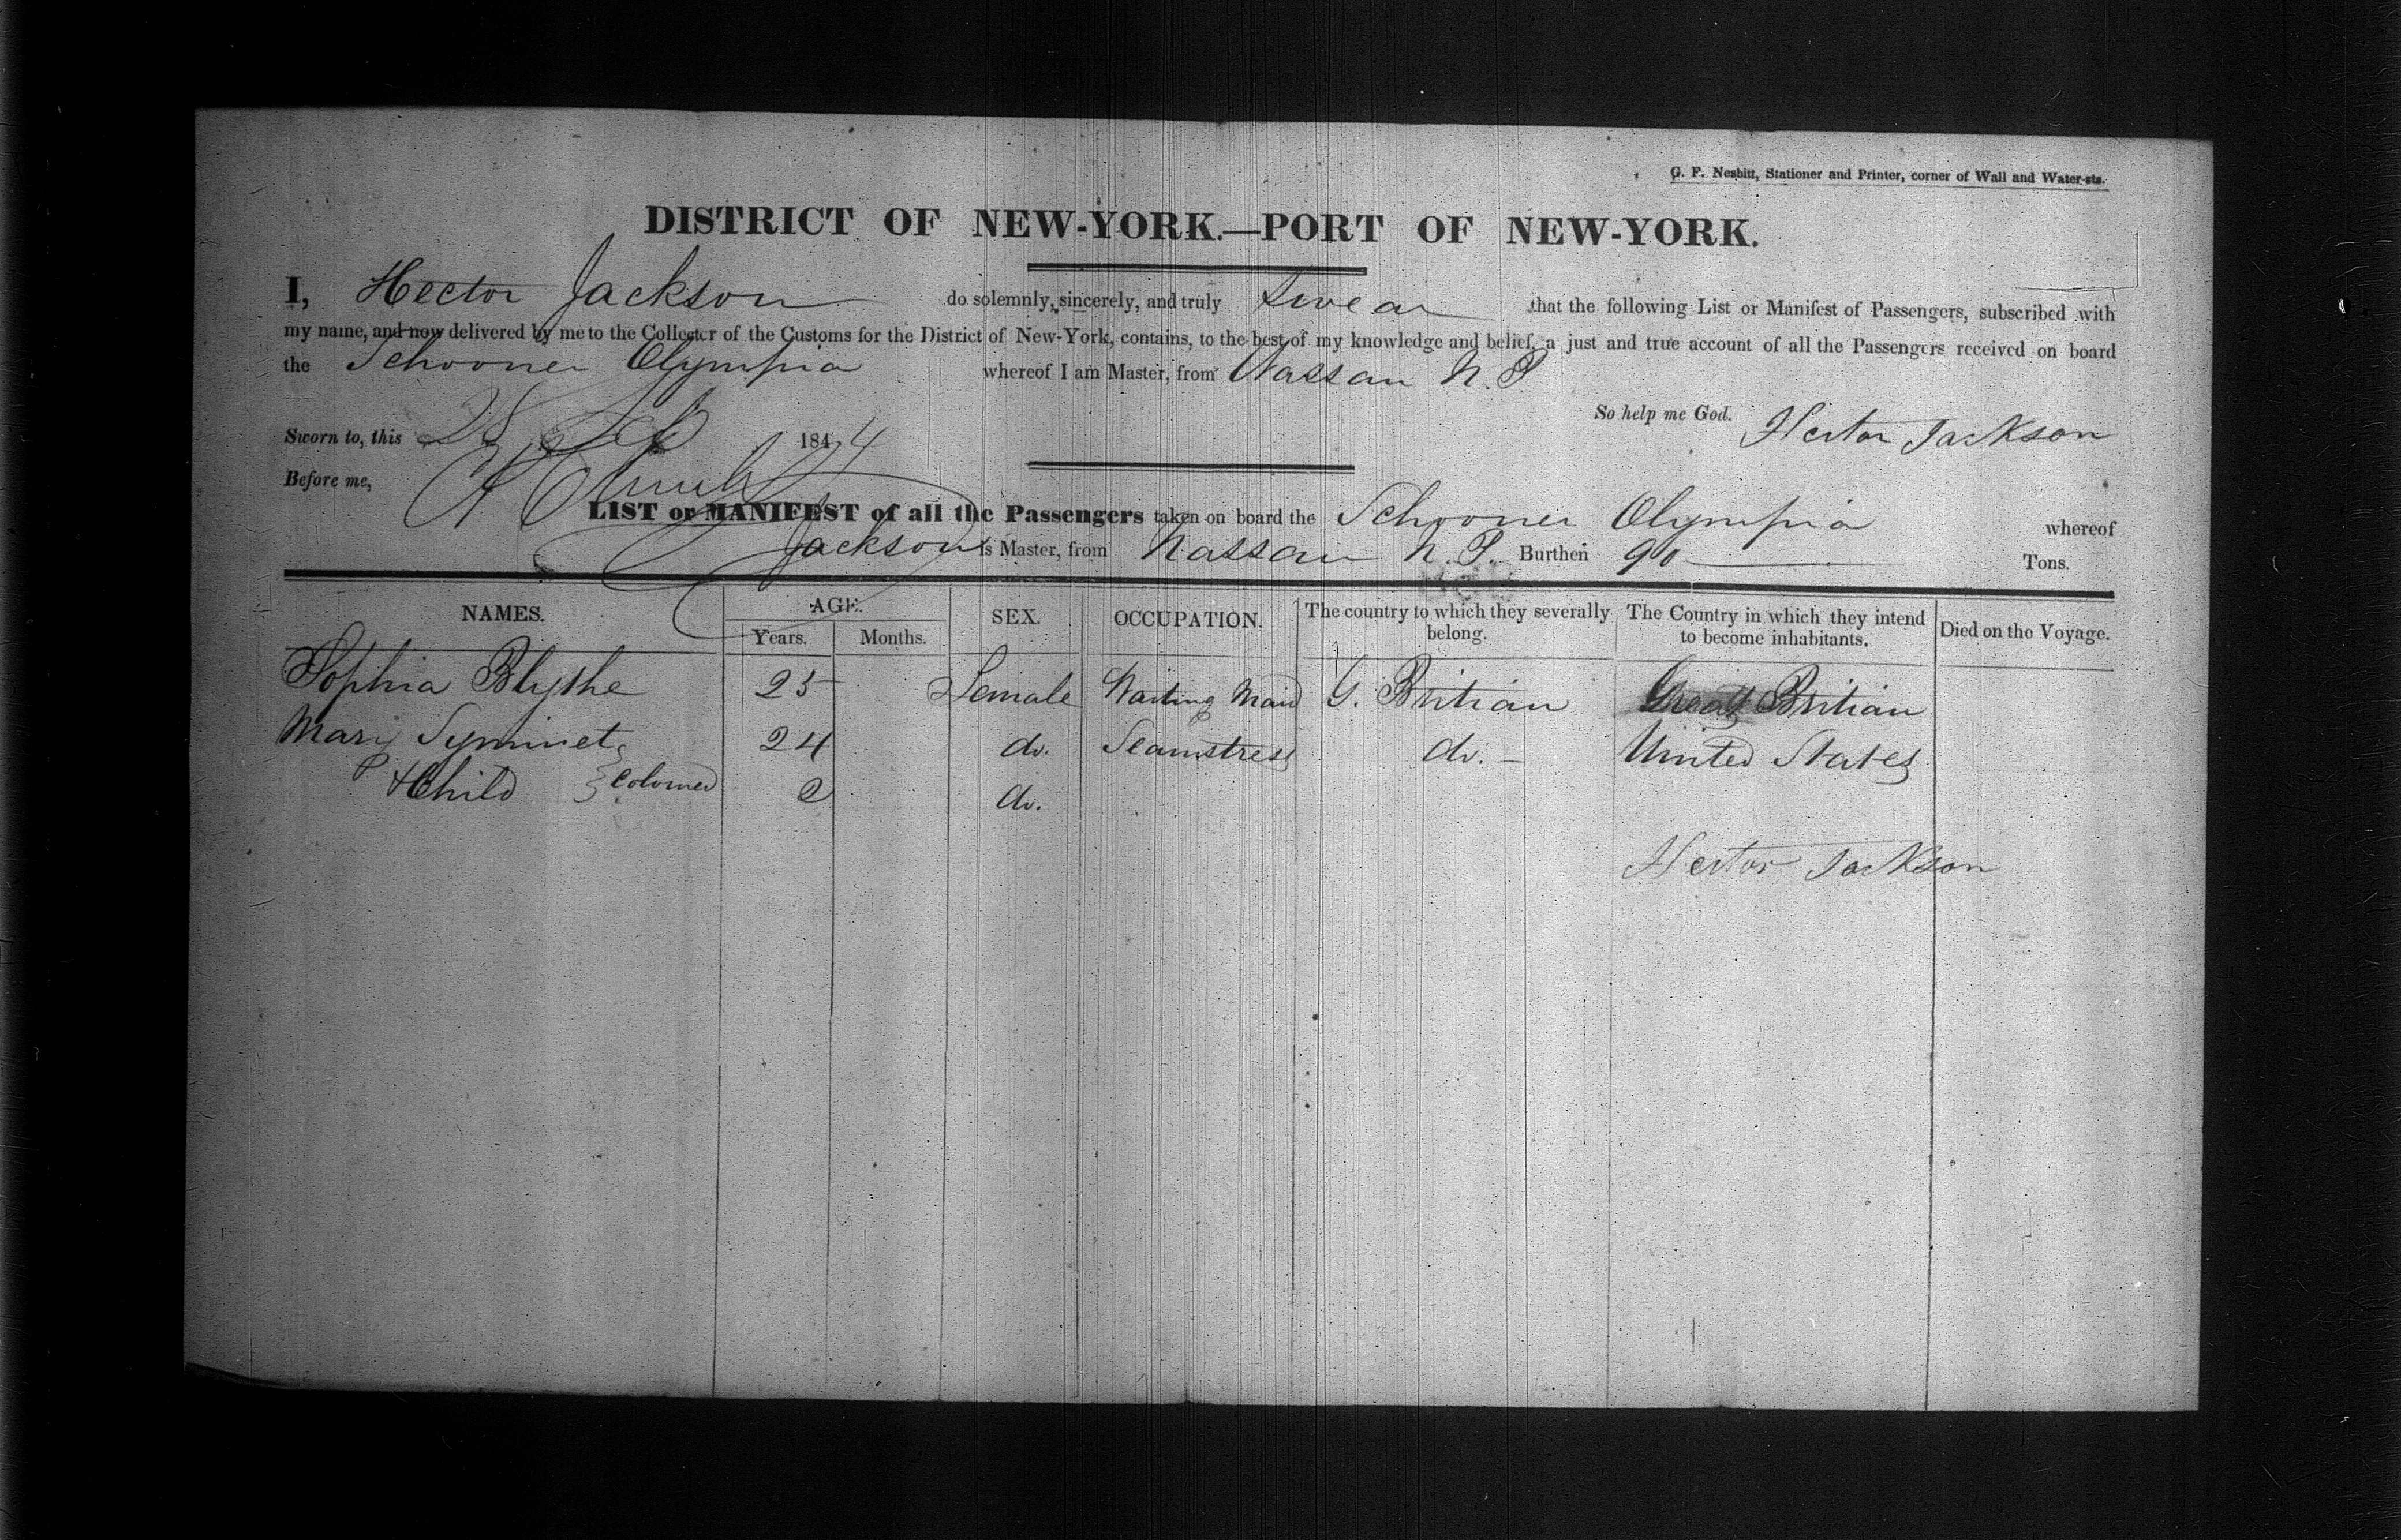 G. F. Nesbitt, Stationer and Printer, corner of Wall and Water-sts.
DISTRICT OF NEW-YORK.—PORT OF NEW-YORK.
I, Hector Jackson do solemnly, sincerely, and truly swear that the following List or Manifest of Passengers, subscribed with
my name, and now delivered by me to the Collector of the Customs for the District of New-York, contains, to the best of my knowledge and belief, a just and true account of all the Passengers received on board
the Schooner Olympia whereof I am Master, from Nassau N. P.
So help me God. Hector Jackson
Sworn to, this 28 Feb 1844
Before me,
LIST or MANIFEST of all the Passengers taken on board the Schooner Olympia whereof
Jackson is Master, from Nassau N. P. Burthen 90 Tons.
NAMES. AGE. SEX. OCCUPATION. The country to which they severally belong. The Country in which they intend to become inhabitants. Died on the Voyage.
Years. Months.
Sophia Blythe 25 Female Waiting Maid G. Britian Great Britian
Mary 24 do. Seamstress do. — United States
& Child } Colored 2 do.
Hector Jackson